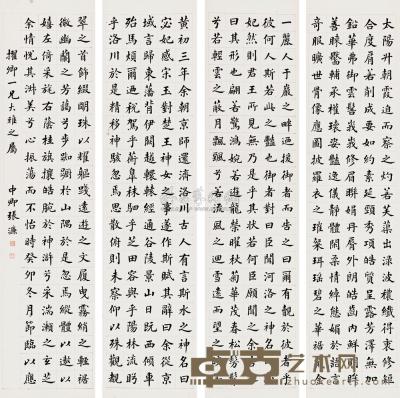 黃初三年余朝京師還濟洛川古人有言斯水之神名曰
宓妃感宋玉對楚王神女之事遂作斯賦其辭曰余從京
域言歸東藩背伊闕越轘轅經通谷陵景山日既西傾車
殆馬煩爾乃稅駕乎蘅皋秣駟乎芝田容與乎陽林流眄
乎洛川於是精移神駭忽焉思散俯則未察仰以殊觀覩
一麗人于巖之畔迺援御者而告之曰爾有覿於彼者乎
彼何人斯若此之豔也御者對曰臣聞河洛之神名曰宓
妃然則君王所見無乃是乎其狀若何臣願聞之余告之
曰其形也翩若驚鴻婉若游龍榮曜秋菊華茂春松髣髴
兮若輕雲之蔽月飄颻兮若流風之迴雪遠而望之皎若
太陽升朝霞迫而察之灼若芙蕖出淥波穠纖得衷修短
合度肩若削成要如約素延頸秀項皓質呈露芳澤無加
鉛華弗御雲髻峩峩修眉聯娟丹脣外朗皓齒內鮮明眸
善睞靨輔承權瓌姿豔逸儀靜體閑柔情綽態媚於語言
奇服曠世骨像應圖披羅衣之璀粲珥瑤碧之華琚戴金
翠之首飾綴明珠以耀軀踐遠遊之文履曳霧綃之輕裾
微幽蘭之芳藹兮步踟躕於山隅於是忽焉縱體以遨以
嬉左倚采旄右蔭桂旗攘皓腕於神滸兮采湍瀨之玄芝
余情悅其淑美兮心振蕩而不怡時癸卯冬月節臨以應
擢卿一兄大雅之屬 申卿張濂
艺术网